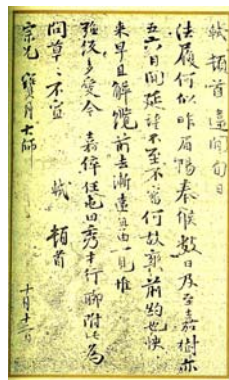 軾頓首違間旬日
法履何似昨眉陽奉候數日及至嘉樹亦
五六日間延望不至不審何故爽前約也怏
來早且解纜前去漸遠無由一見惟
強多愛今嘉倅任屯田秀才行聊附此為
問草々不宣 軾 頓首
宗兄寶月大師 十月十二日